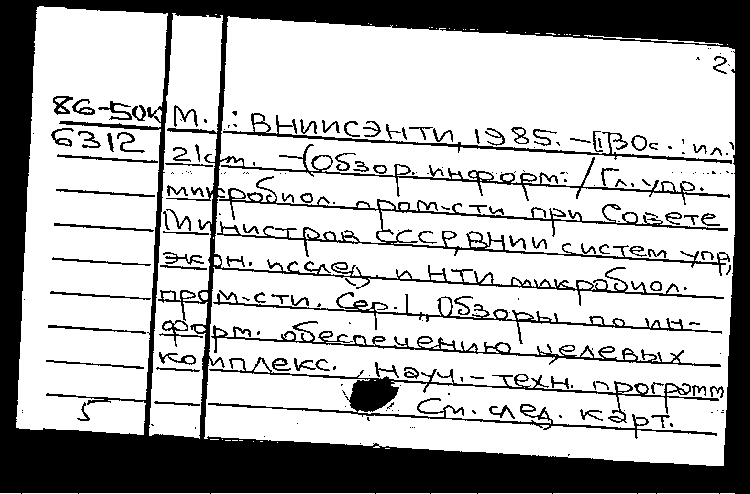 2.
86-50к М. : ВНИИСЭНТИ, 1985. -[1]30с. : ил.;
6312 21см. -(Обзор. информ. / Гл. упр.
микробиол. пром-сти при Совете
Министров СССР, ВНИИ систем упр.,
экон. исслед. и НТИ микробиол.
пром-сти. Сер. 1, Обзоры по ин-
форм. обеспечению целевых
комплекс. науч.-техн. программ
5 См. след. карт.